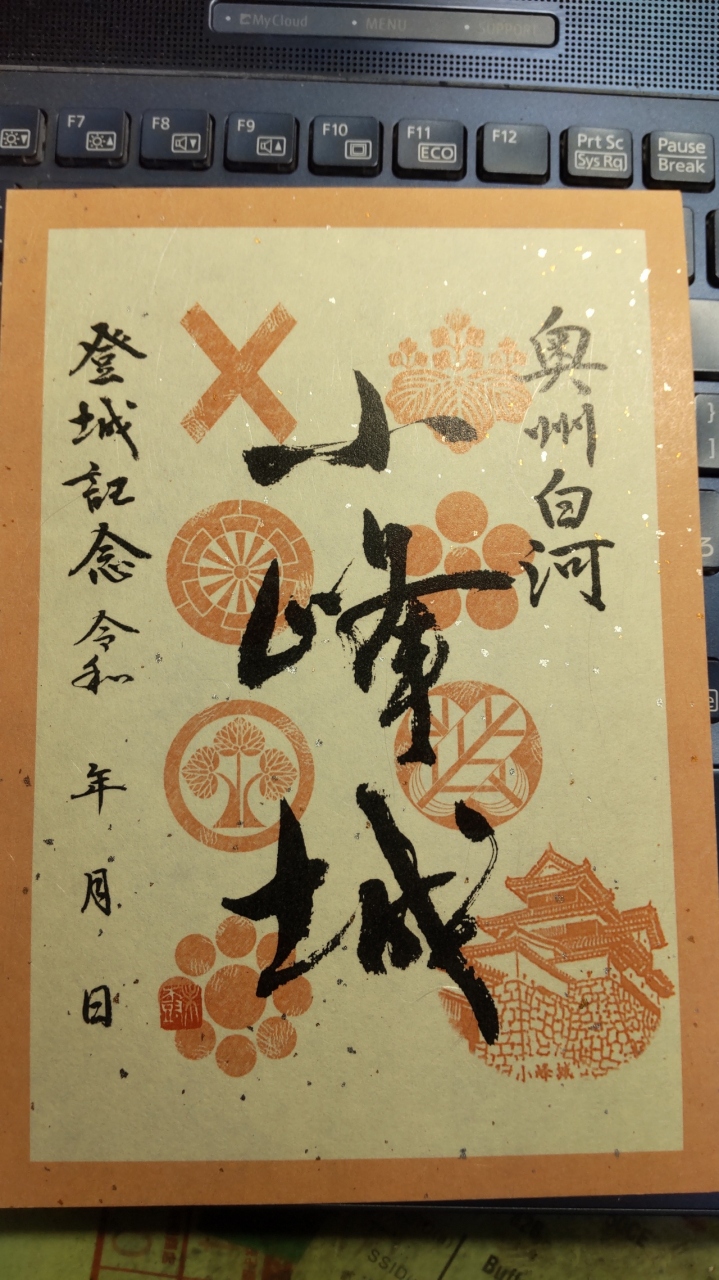 MyCloud MENU SUPPORT
F7 F8 F9 F10 F11 F12 Prt Sc Pause
ECO Sys Rq Break
奥州白河
小峰城
登城記念 令和 年 月 日
小峰城